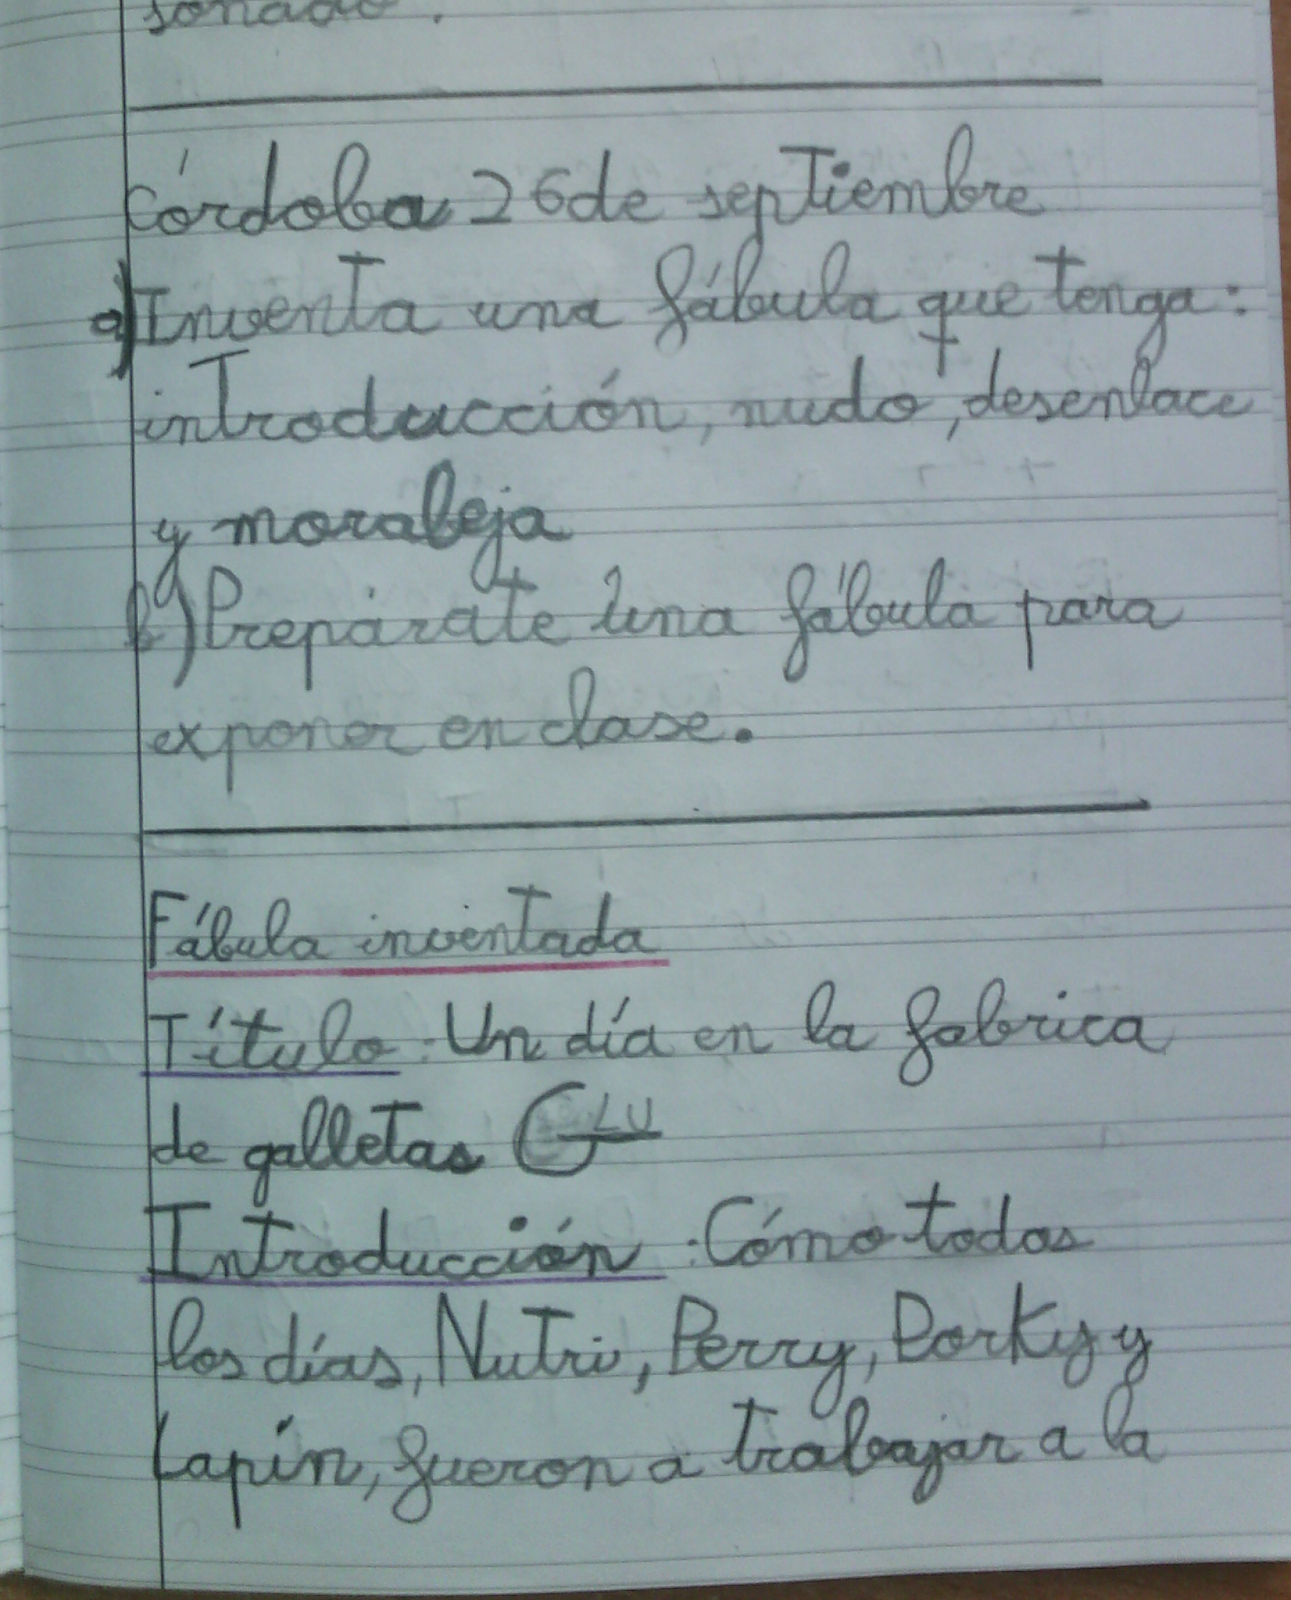 sonado.
Córdoba 26 de septiembre
a) Inventa una fábula que tenga:
introducción, nudo, desenlace
y moraleja
b) Prepárate una fábula para
exponer en clase.
Fábula inventada
Título: Un día en la fabrica
de galletas LU
Introducción: Cómo todos
los días, Nutri, Perry, Porky y
Lapín, fueron a trabajar a la